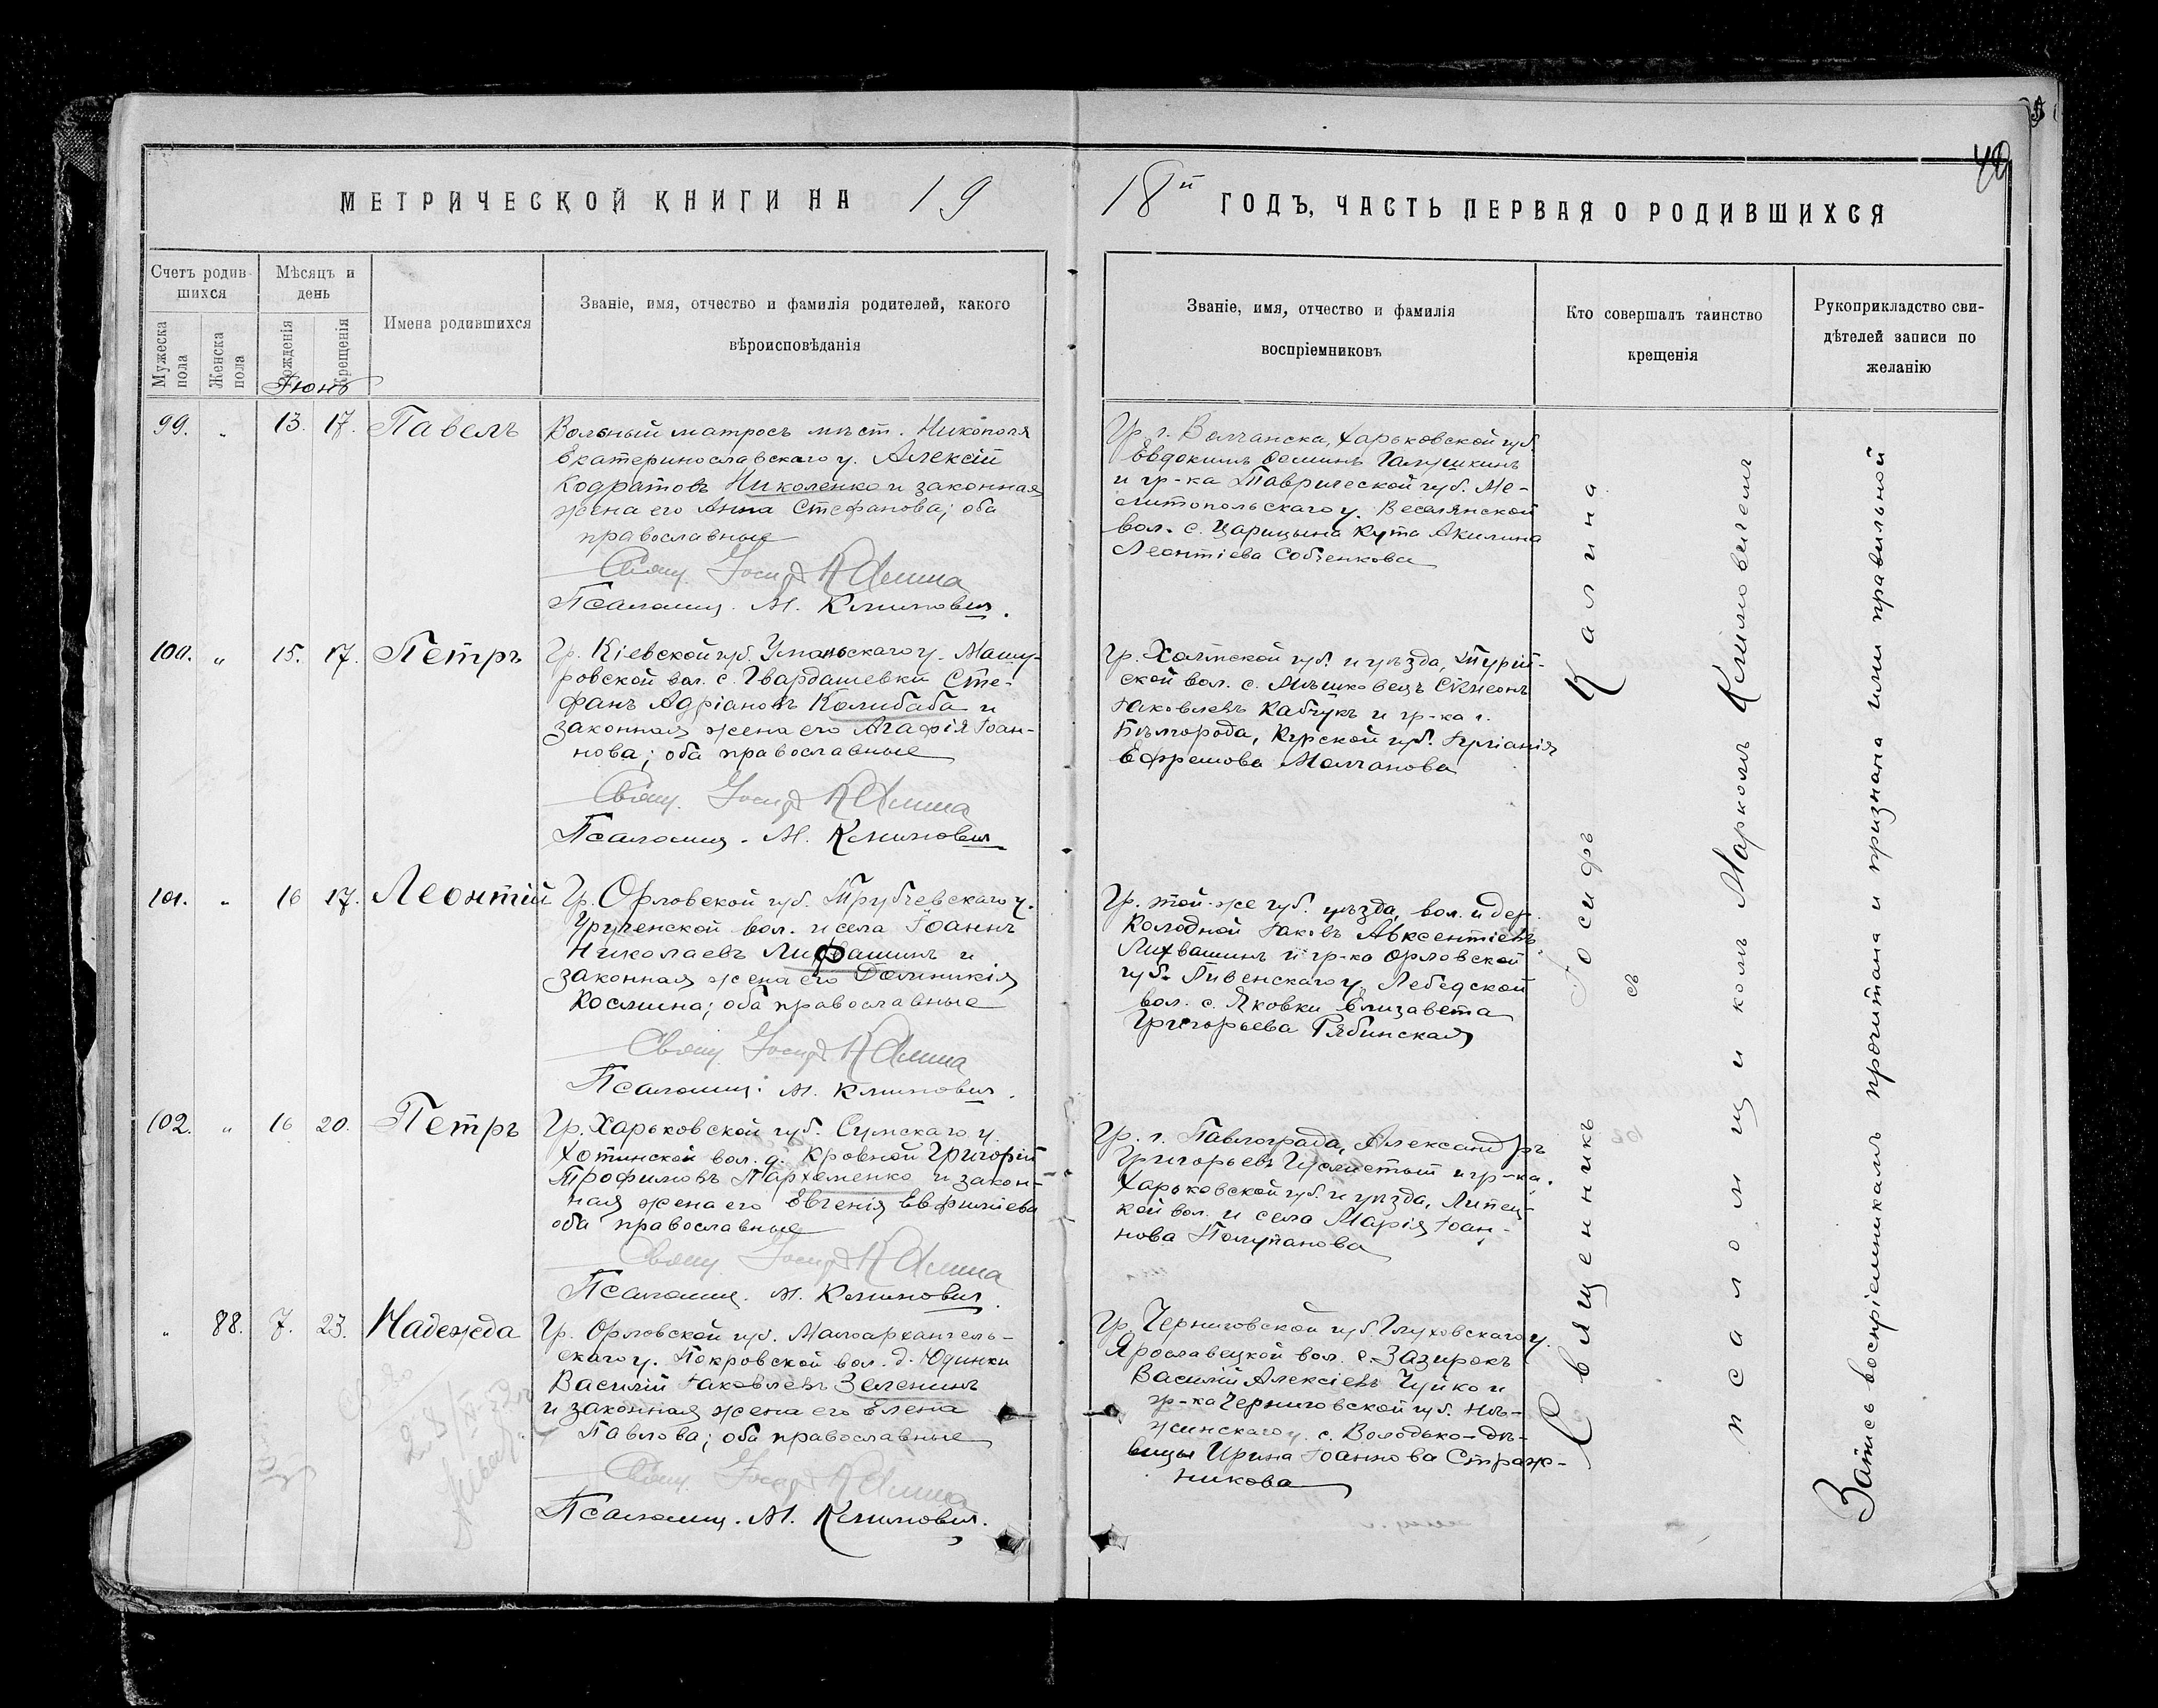 МЕТРИЧЕСКОЙ КНИГИ НА 19
Счетъ родив-
шихся
Мѣсяцъ и
день
Имена родившихся
Званіе, имя, отчество и фамилія родителей, какого
вѣроисповѣданія
Мужеска
пола
Женска
пола
Рожденія
Крещенія
Іюнь
99. „ 13. 17. Павелъ
Вольный матросъ мѣст. Никополя
Екатеринославскаго у. Алексій
Кодратовъ Николенко и законная
жена его Анна Стефанова; оба
православные
Свящ. Іосифъ Калина
Псаломщ. М. Климович.
100. „ 15. 17. Петръ
Гр. Кіевской губ. Уманьскаго у. Машу-
ровской вол. с. Гвардашевки Сте-
фанъ Адріановъ Колибаба и
законная жена его Агафія Іоан-
нова; оба православные
Свящ. Іосифъ Калина
Псаломщ. М. Климович
101. „ 16 17. Леонтій
Гр. Орловской губ. Трубчевскаго у.
Урученской вол. и села Іоаннъ
Николаевъ и
законная жена его Домникія
Космина; оба православные
Свящ. Іосифъ Калина
Псаломщ. М. Климович.
102. „ 16 20. Петръ
Гр. Харьковской губ. Сумскаго у.
Хотинской вол. д. Кровной Григорій
Трофимовъ Пархоменко и закон-
ная жена его Евгенія Евфиміева
оба православные
Свящ. Іосифъ Калина
Псаломщ. М. Климович.
„ 88. 7. 23. Надежда
Гр. Орловской губ. Малоархангель-
скаго у. Покровской вол. д. Юдинки
Василій Іаковлевъ Зеленинъ
и законная жена его Елена
Павлова; оба православные
Свящ. Іосифъ Калина
Псаломщ. М. Климович.
18й ГОДЪ, ЧАСТЬ ПЕРВАЯ О РОДИВШИХСЯ
49
Званіе, имя, отчество и фамилія
воспріемниковъ
Кто совершалъ таинство
крещенія
Рукоприкладство сви-
дѣтелей записи по
желанію
Гр. г. Волчанска, Харьковской губ.
Евдокимъ Ѳоминъ Галушкинъ
и гр-ка Таврической губ. Ме-
литопольскаго у. Веселянской
вол. с. Царицына Кута Акилина
Леонтіева Собченкова
Гр. Холмской губ. и уѣзда, Турій-
ской вол. с. Мѣшковецъ Сімеонъ
Іаковлевъ Кабчукъ и гр-ка г.
Бѣлгорода, Курской губ. Іуліанія
Ефремова Молчанова
Гр. той-же губ. уѣзда, вол. и дер.
Колодной Іаковъ Авксентіевъ
Лихвашинъ и гр-ка Орловской
губ. Ливенскаго у. Лебедской
вол. с. Яковки Елизавета
Григорьева Рябинская
Гр. г. Павлограда, Александръ
Григорьевъ и гр-ка
Харьковской губ. и уѣзда, Липец-
кой вол. и села Марія Іоан-
нова Полупанова
Гр. Черниговской губ. Глуховскаго у.
Ярославецкой вол. с. Зазирокъ
Василій Алексіевъ Чуйко и
гр-ка Черниговской губ. Нѣ-
жинскаго у. с. Володько-Дѣ-
вицы Ирина Іоаннова Страж-
никова
Священникъ Іосифъ Калина
съ
псаломщикомъ Маркомъ Климовичемъ
Запись воспріемникамъ прочитана и признана ими правильной